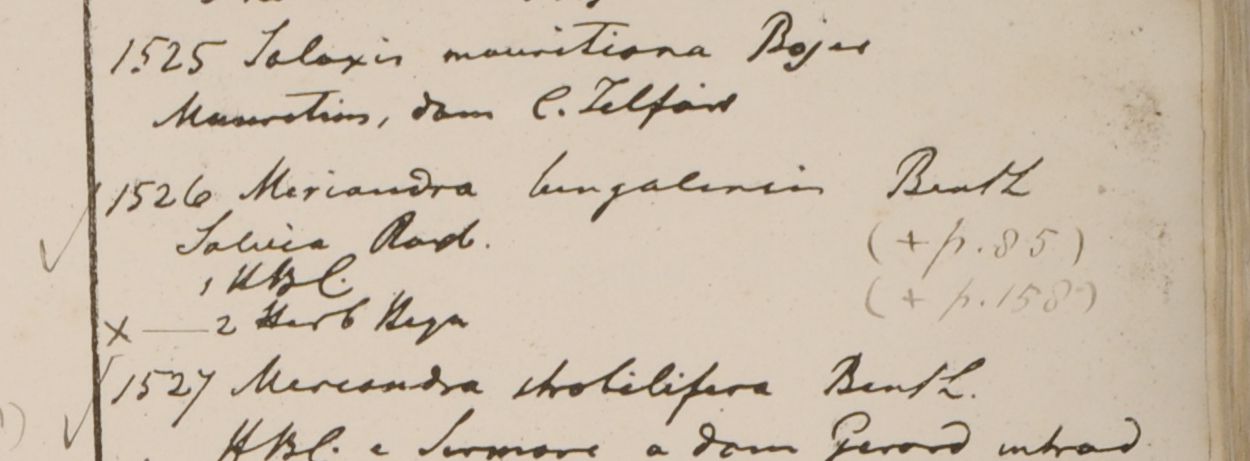 1525 Salaxis mauritiana Bojer
Mauritius, dom C. Telfair
1526 Meriandra bengalensis Benth
(+ p. 85)
Salvia Roxb.
1 HBC.
(+ p. 158)
x — 2 Herb Heyn
1527 Meriandra strobilifera Benth.
HBC. e Sirmore a dom Gerard introd